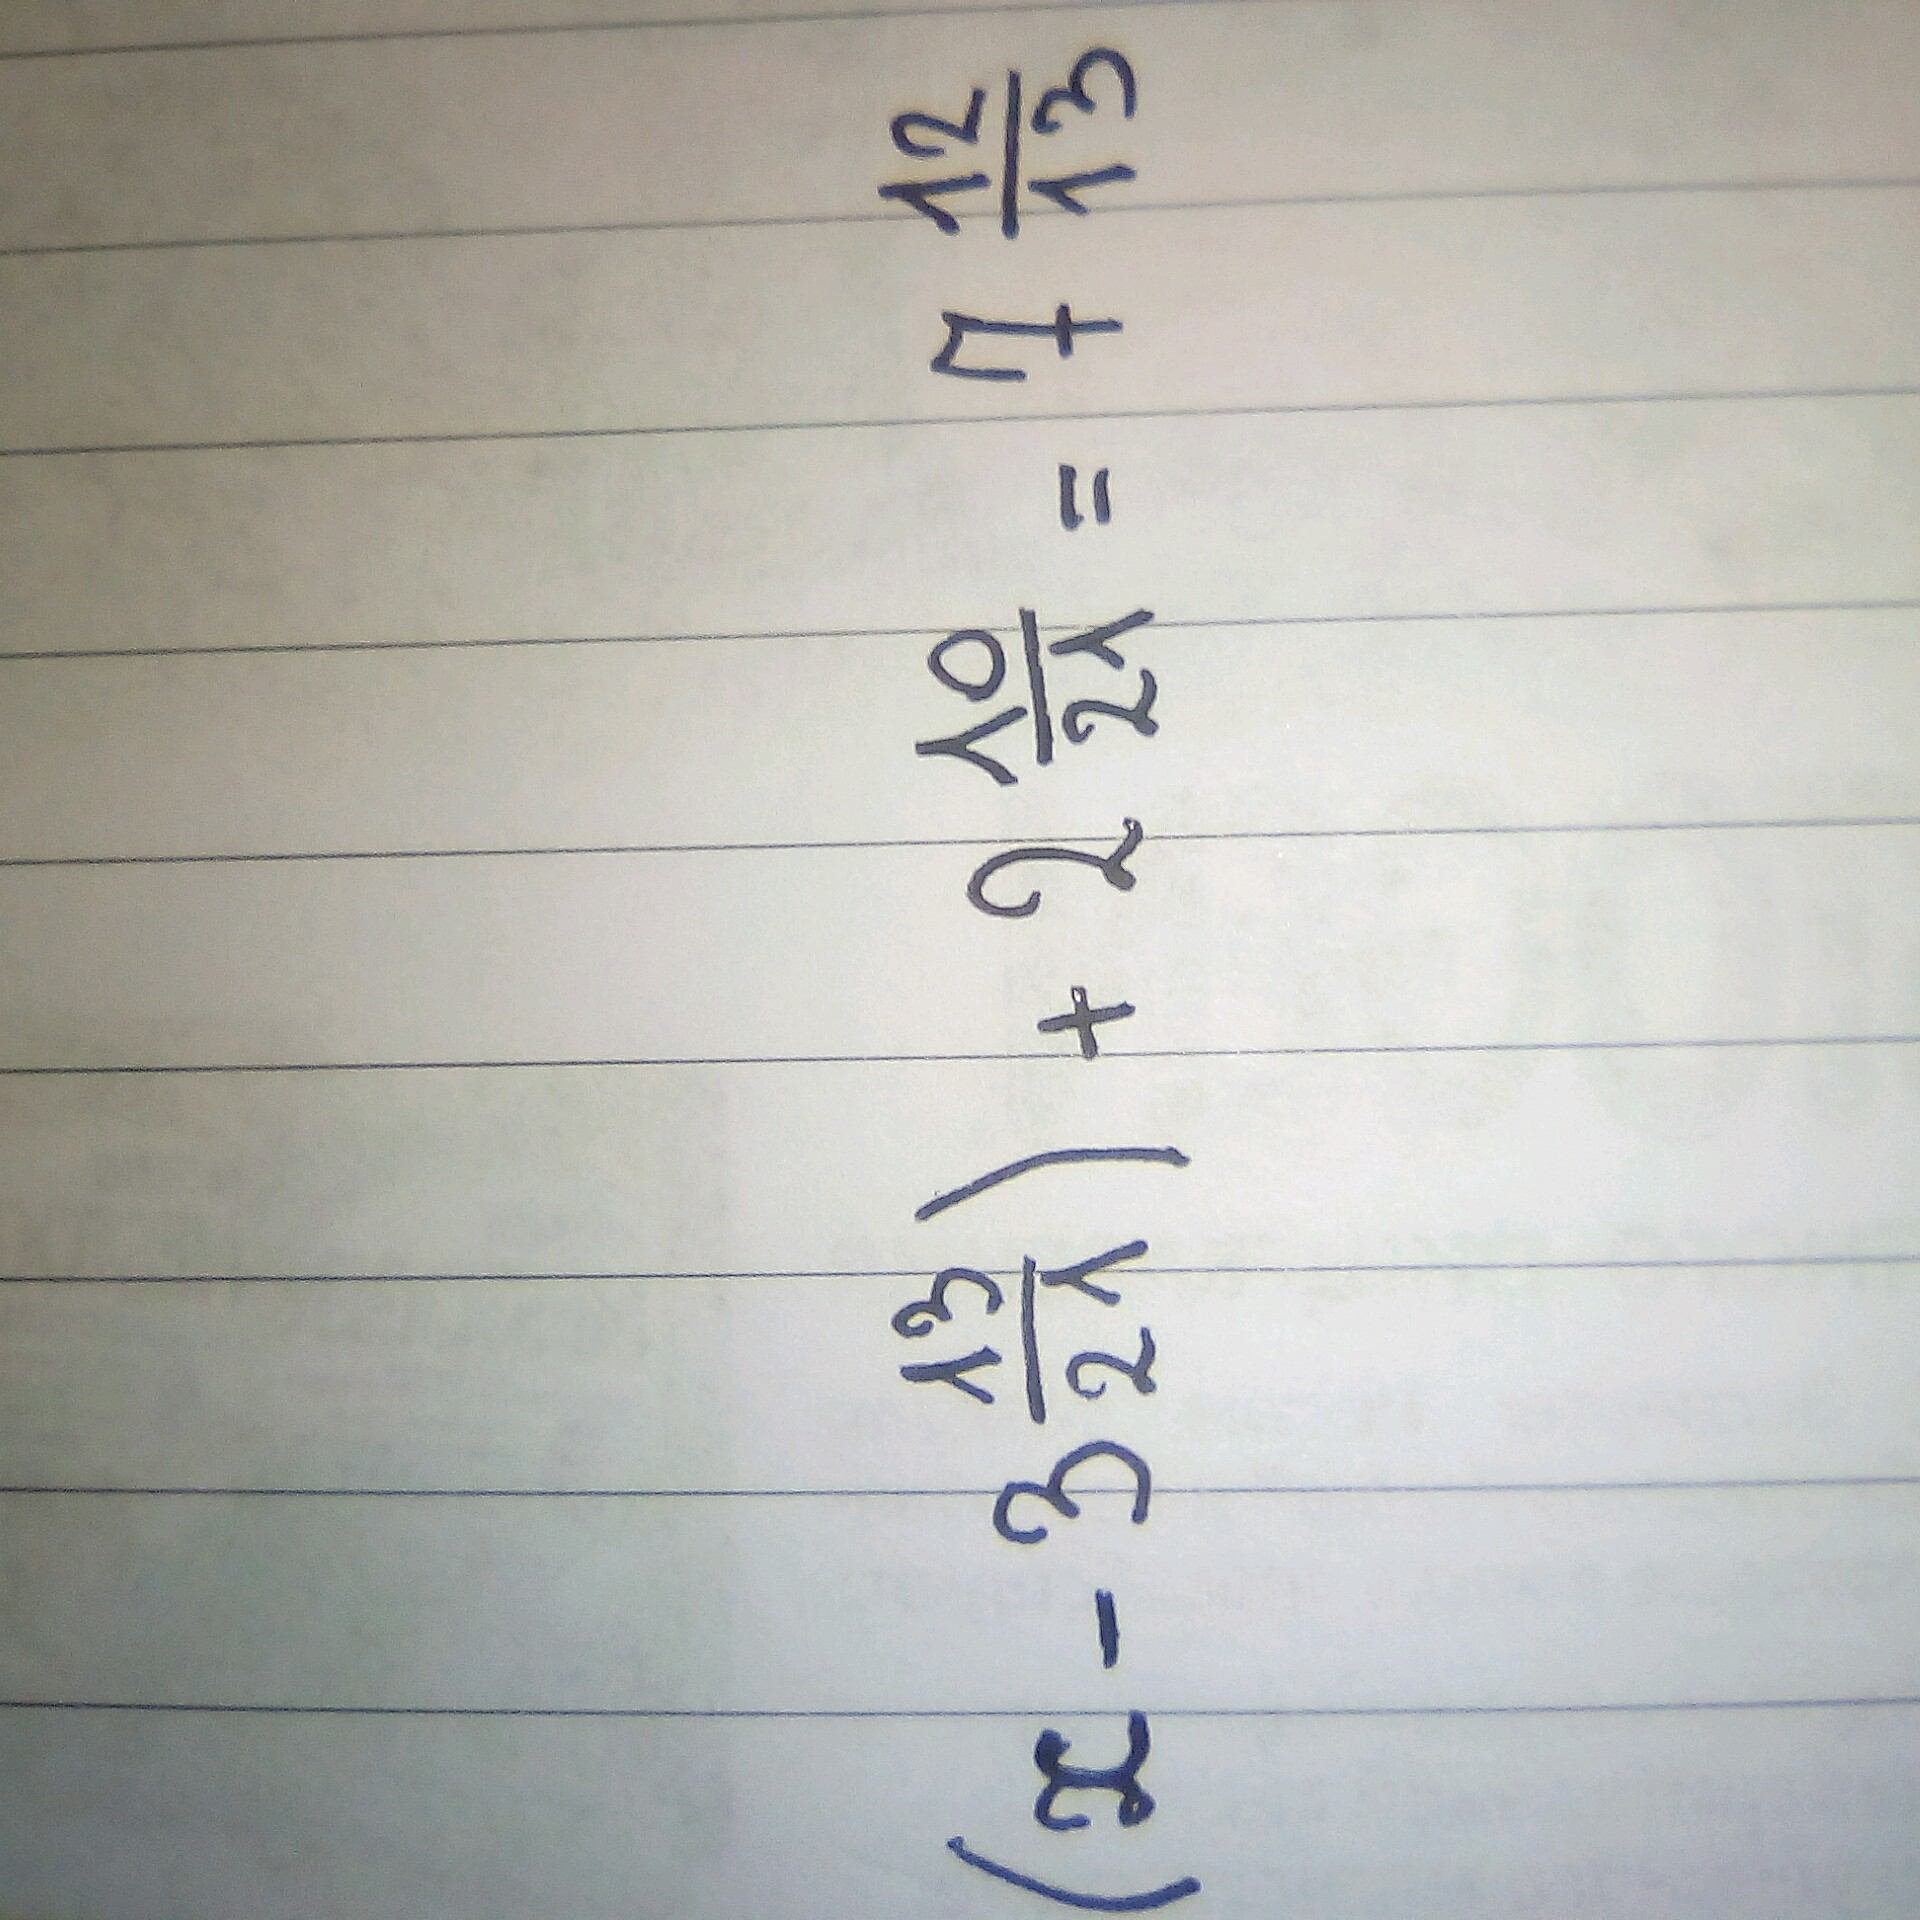 (x - 3 13/21) + 2 10/21 = 7 12/13